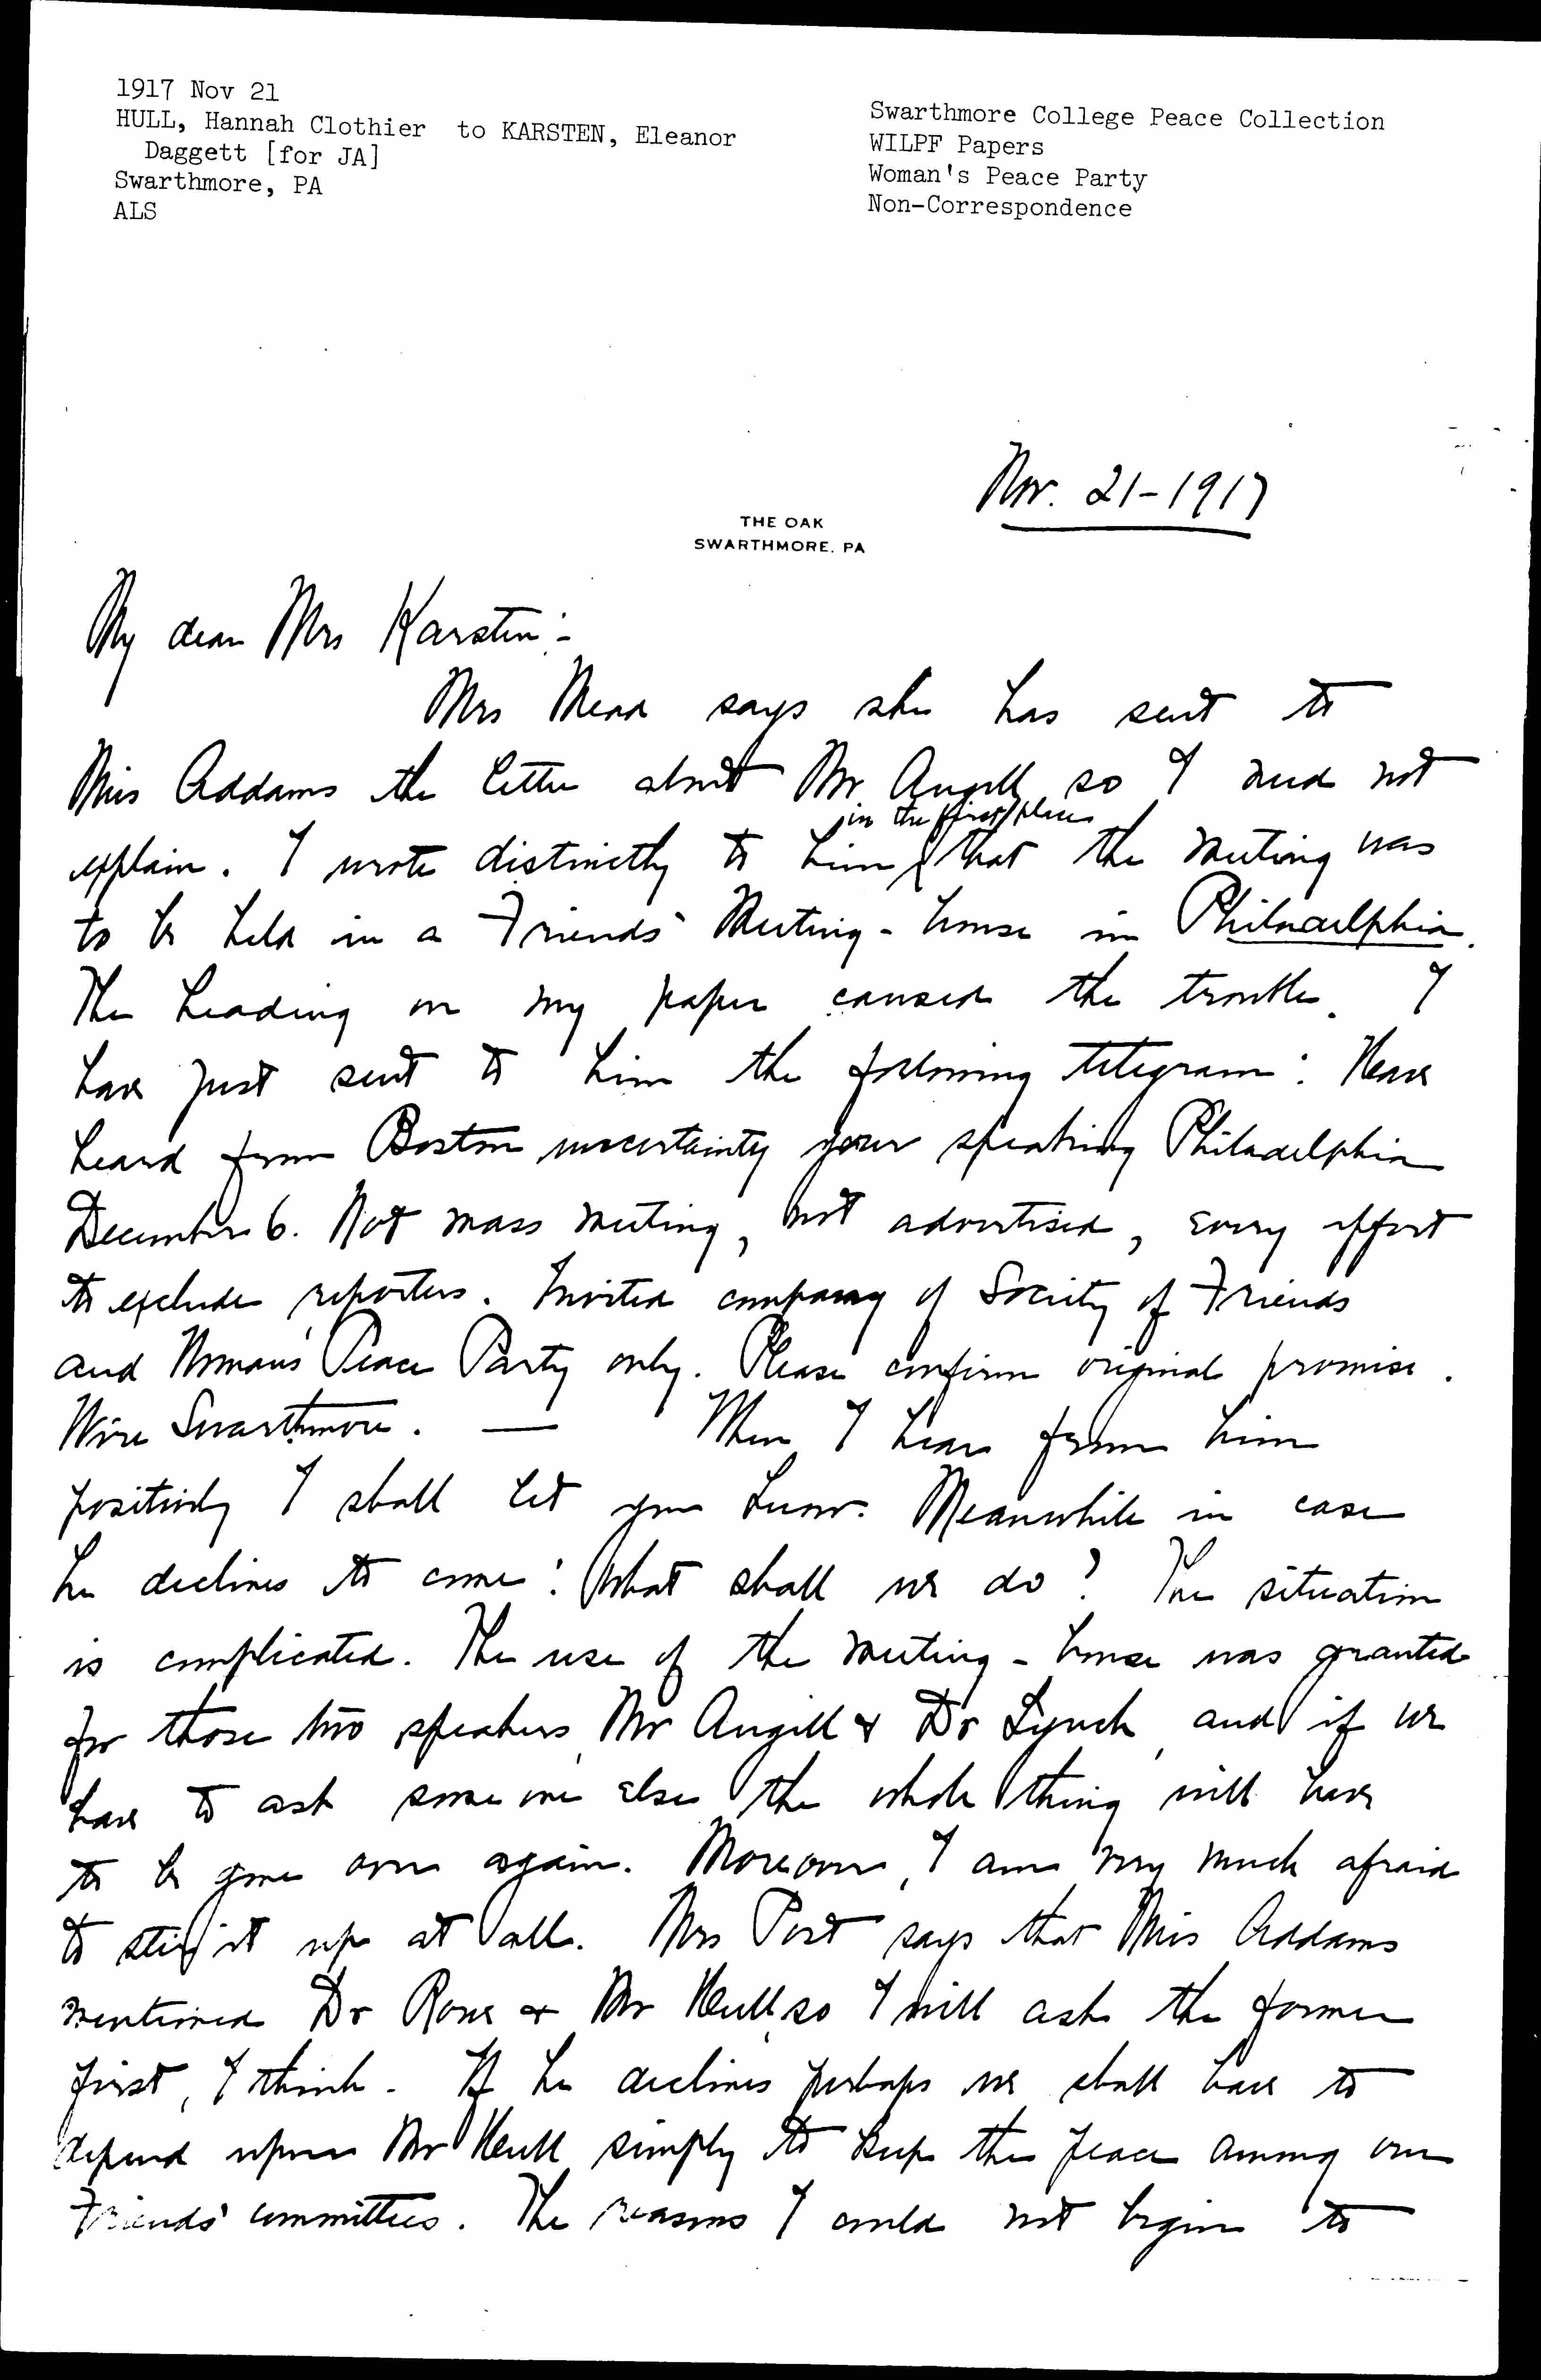 1917 Nov 21
HULL, Hannah Clothier to KARSTEN, Eleanor
Daggett [for JA]
Swarthmore, PA
ALS
Swarthmore College Peace Collection
WILPF Papers
Woman's Peace Party
Non-Correspondence
Nov. 21-1917
THE OAK
SWARTHMORE, PA
My dear Mrs Karsten:-
Mrs Mead says she has sent to
Miss Addams the letter about Mr. Angell so I need not
in the first place
explain. I wrote distinctly to him that the meeting was
to be held in a Friends' Meeting-house in Philadelphia.
The heading on my paper caused the trouble. I
have just sent to him the following telegram: Have
heard from Boston uncertainty your speaking Philadelphia
December 6. Not mass meeting, not advertised, every effort
to exclude reporters. Invited company of Society of Friends
and Woman's Peace Party only. Please confirm original promise.
Wire Swarthmore. — When I hear from him
positively I shall let you know. Meanwhile in case
he declines to come: What shall we do? The situation
is complicated. The use of the meeting-house was granted
for those two speakers, Mr Angell & Dr Lynch, and if we
have to ask some one else the whole thing will have
to be gone over again. Moreover, I am very much afraid
to stir it up at all. Mrs Post says that Miss Addams
mentioned Dr Rowe & Mr Hull, so I will ask the former
first, I think. If he declines perhaps we shall have to
depend upon Mr Hull simply to keep the peace among our
Friends' committees. The reasons I could not begin to